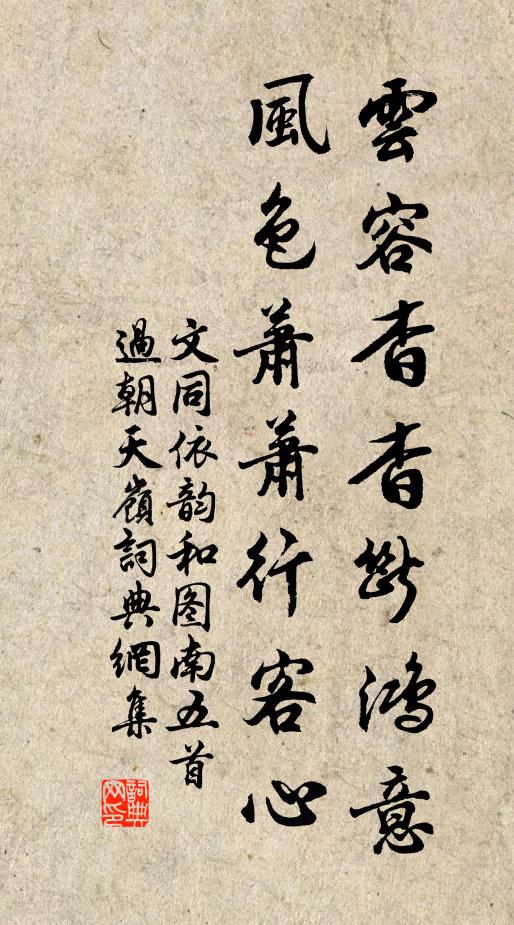 雲容杳杳斷鴻意
風色蕭蕭行客心
文同依韵和图南五首
過朝天嶺詞典網集
詞典网印